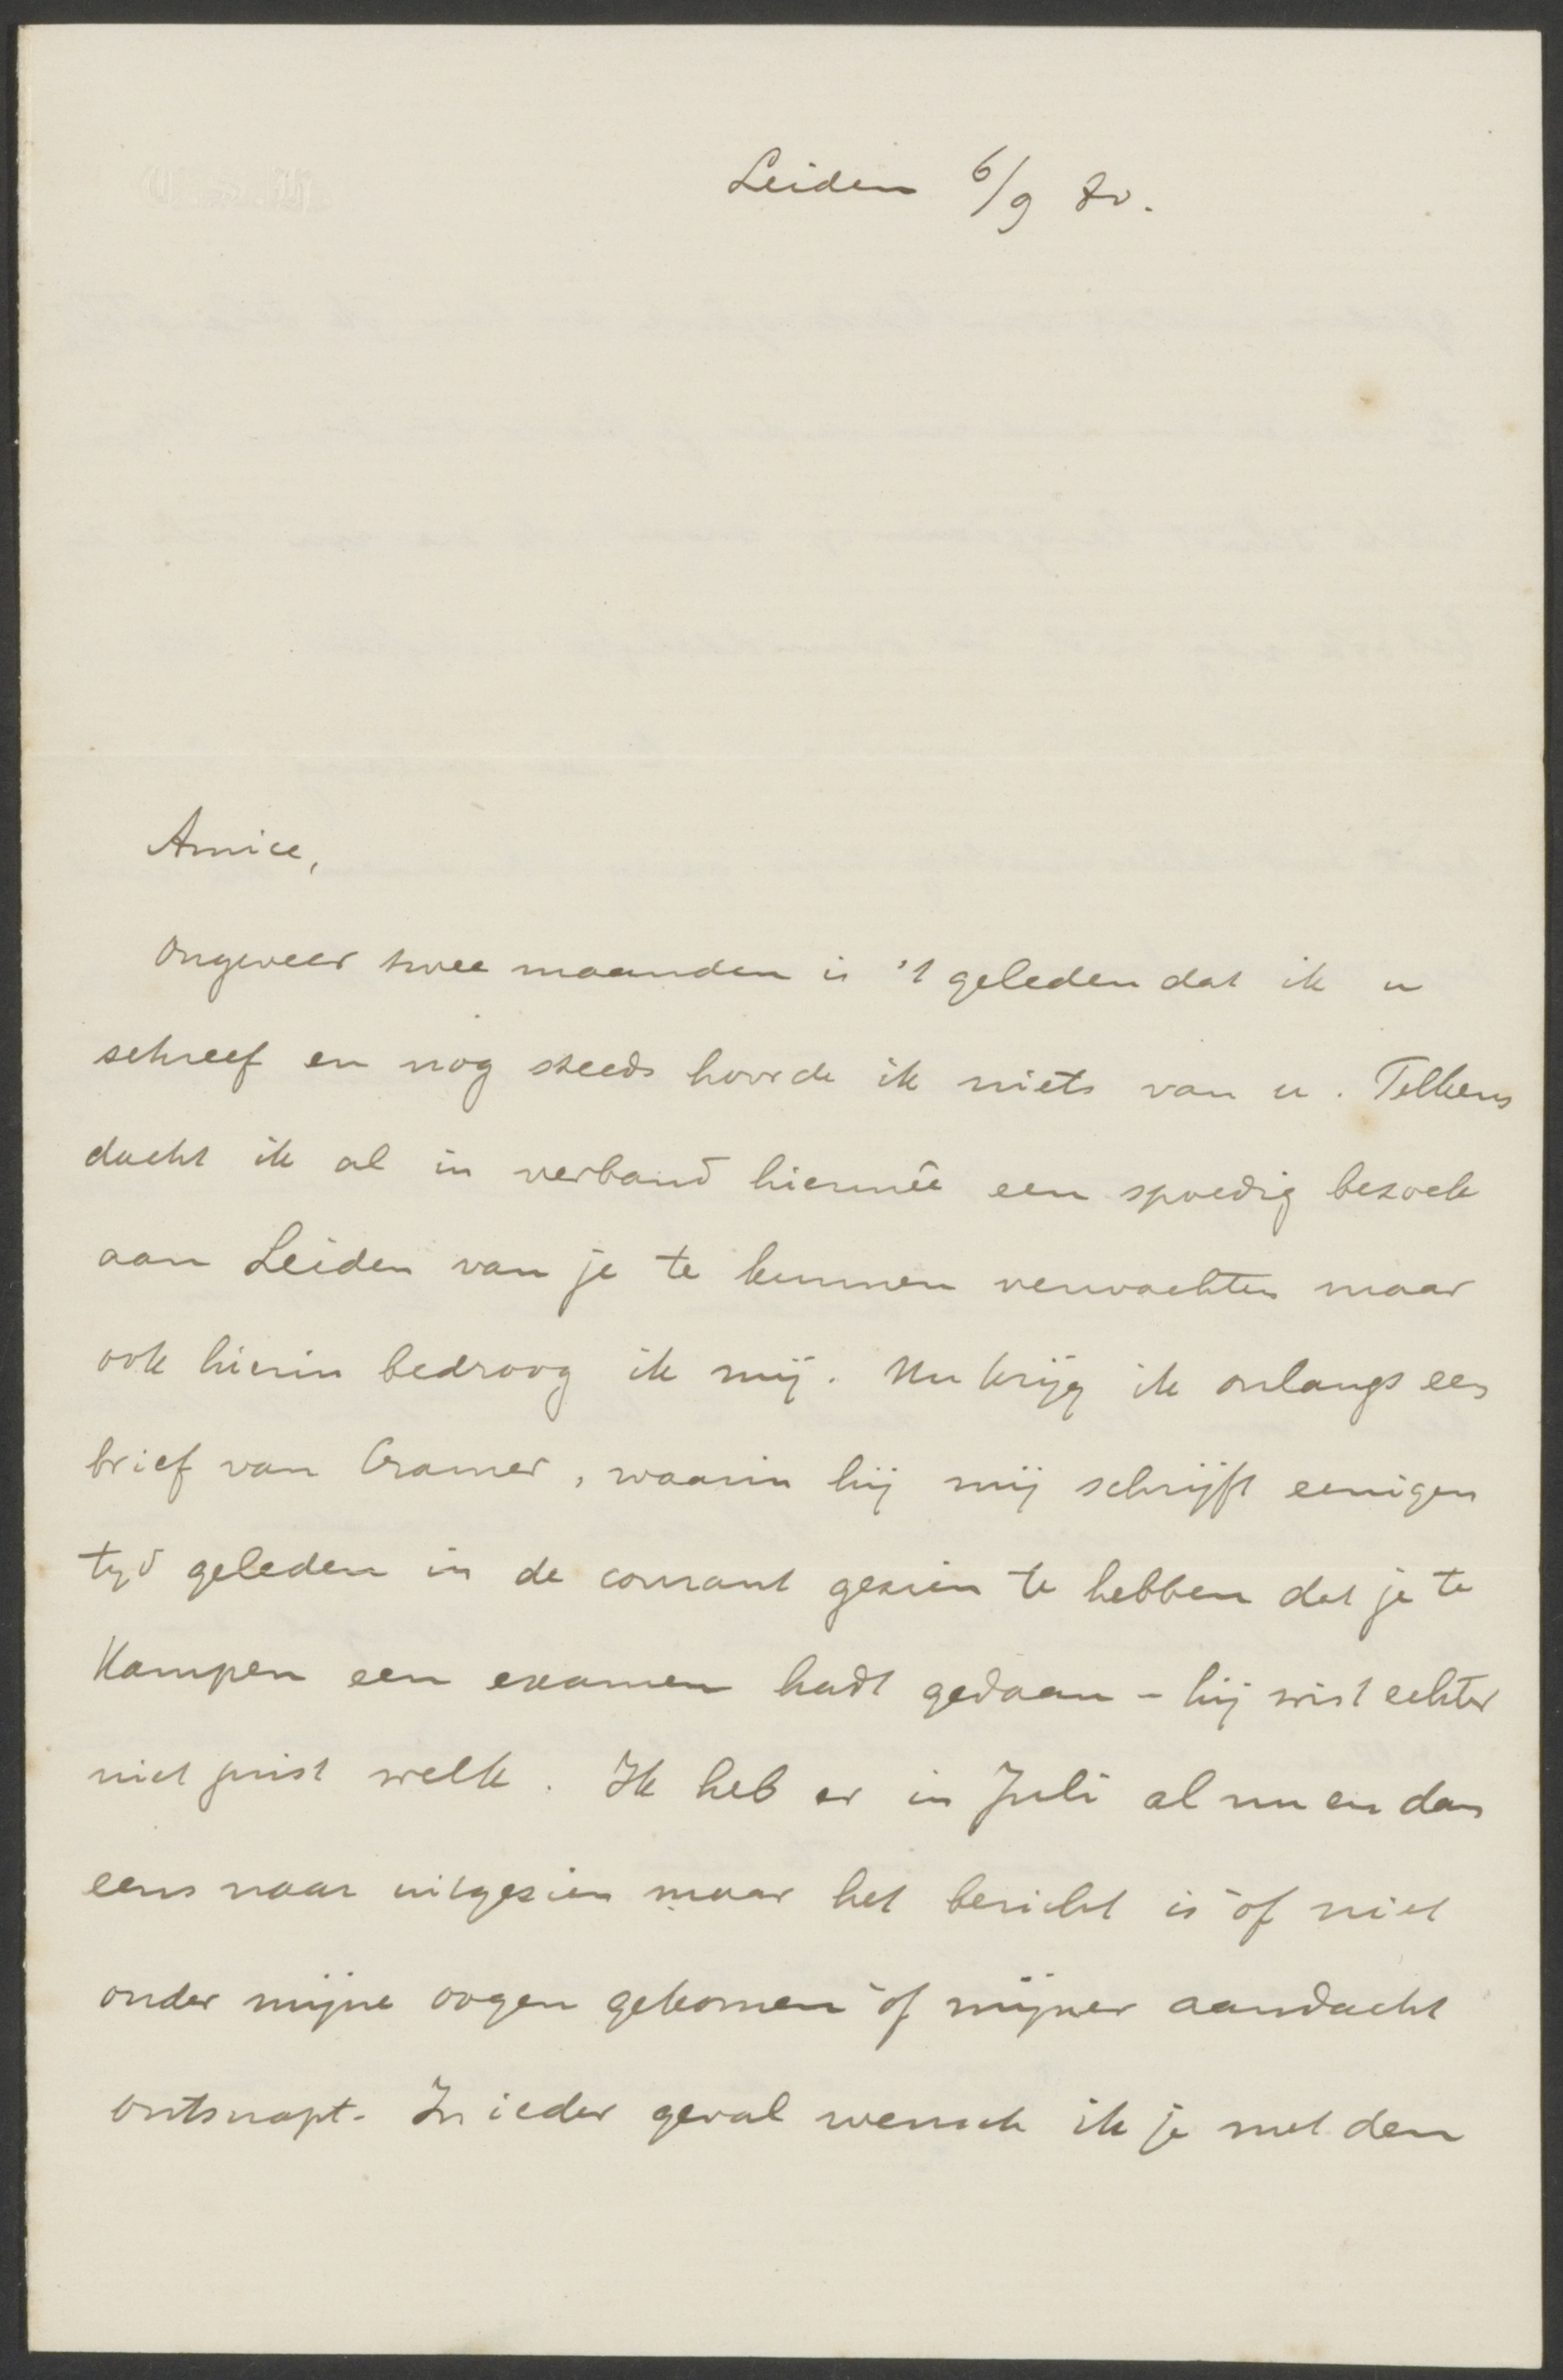 Leiden 6/9 80.
Amice,
Ongeveer twee maanden is 't geleden dat ik u
schreef en nog steeds hoorde ik niets van u. Telkens
dacht ik al in verband hiermêe een spoedig bezoek
aan Leiden van je te kunnen verwachten maar
ook hierin bedroog ik mij. Nu krijg ik onlangs een
brief van Cramer, waarin hij mij schrijft eenigen
tijd geleden in de courant gezien te hebben dat je te
Kampen een examen hadt gedaan - hij wist echter
niet juist welk. Ik heb er in Juli al nu en dan
eens naar uitgezien maar het bericht is òf niet
onder mijne oogen gekomen òf mijner aandacht
ontsnapt. In ieder geval wensch ik je met den